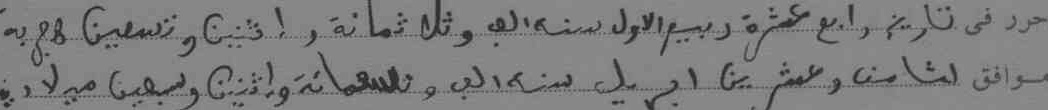 حرر فى تاريخ رابع عشرة ربيع الاول سنه الف وثلاثمائة و اثنين و تسعين هجرية
موافق لثامن وعشرين ابريل سنه الف و تسعمائة واثنين وسبعين ميلادية